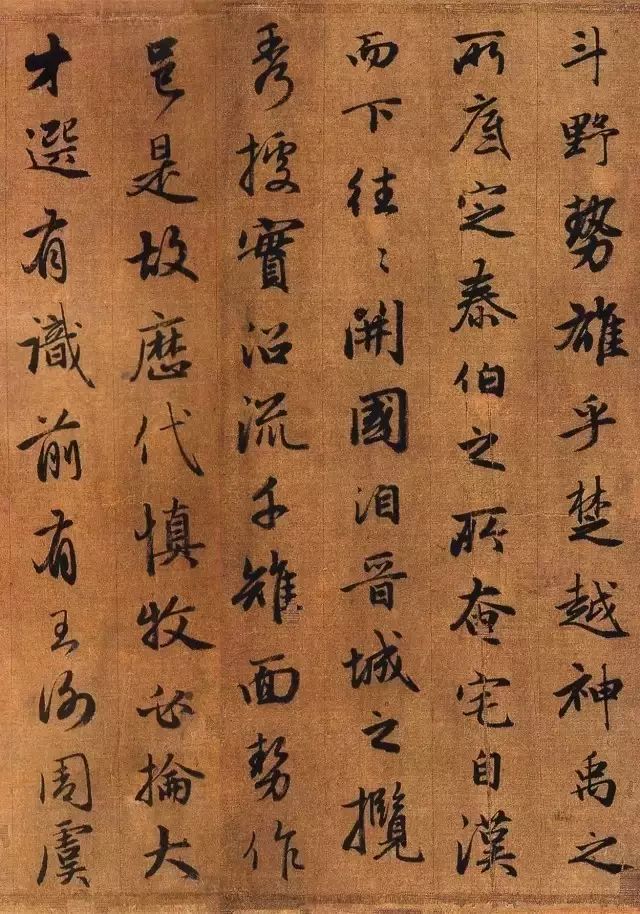 斗野勢雄乎楚越神禹之
所底定泰伯之所奄宅自漢
而下往〻開國洎晉城之攬
秀擾實沿流千雉面勢作
邑是故歷代慎牧必掄大
才選有識前有王例周虞